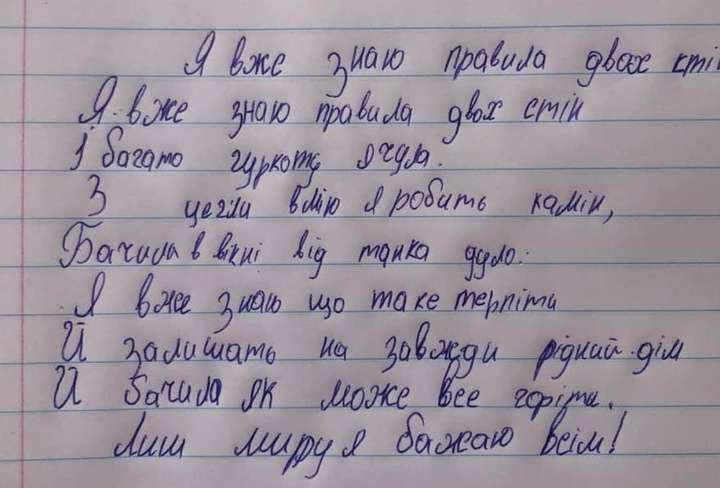 Я вже знаю правила двох стін
Я вже знаю правила двох стін
І багато гуркоту я чула.
З цегли вмію я робить камін,
Бачила в вікні від танка дуло.
Я вже знаю що таке терпіти
Й залишать на завжди рідний дім
Й бачила як може все горіти.
Лиш миру я бажаю всім!